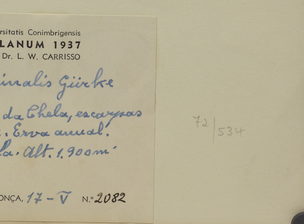 rsitatis Conimbrigensis
LANUM 1937
Dr. L. W. CARRISSO
inalis Gürke
da Chela, escarpas
. Erva anual.
Alt. 1.900m
ONÇA, 17-V N.º 2082
72/534